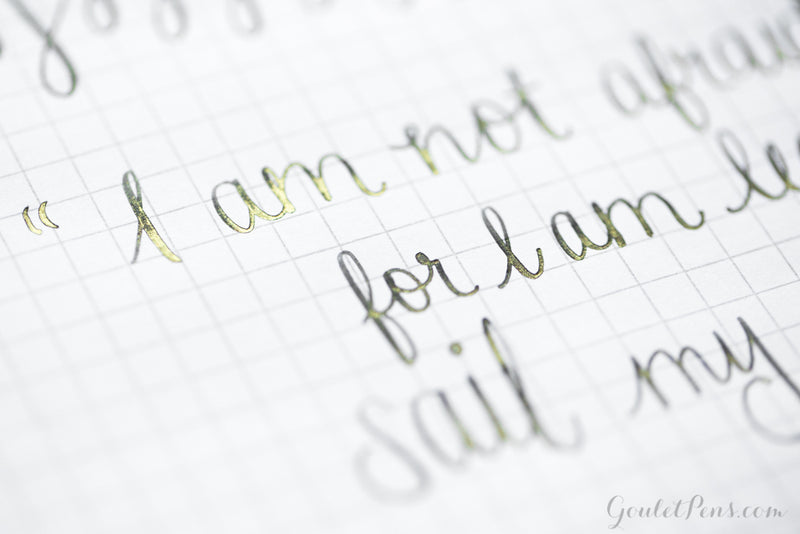 “ I am not afraid
for I am le
sail my
GouletPens.com